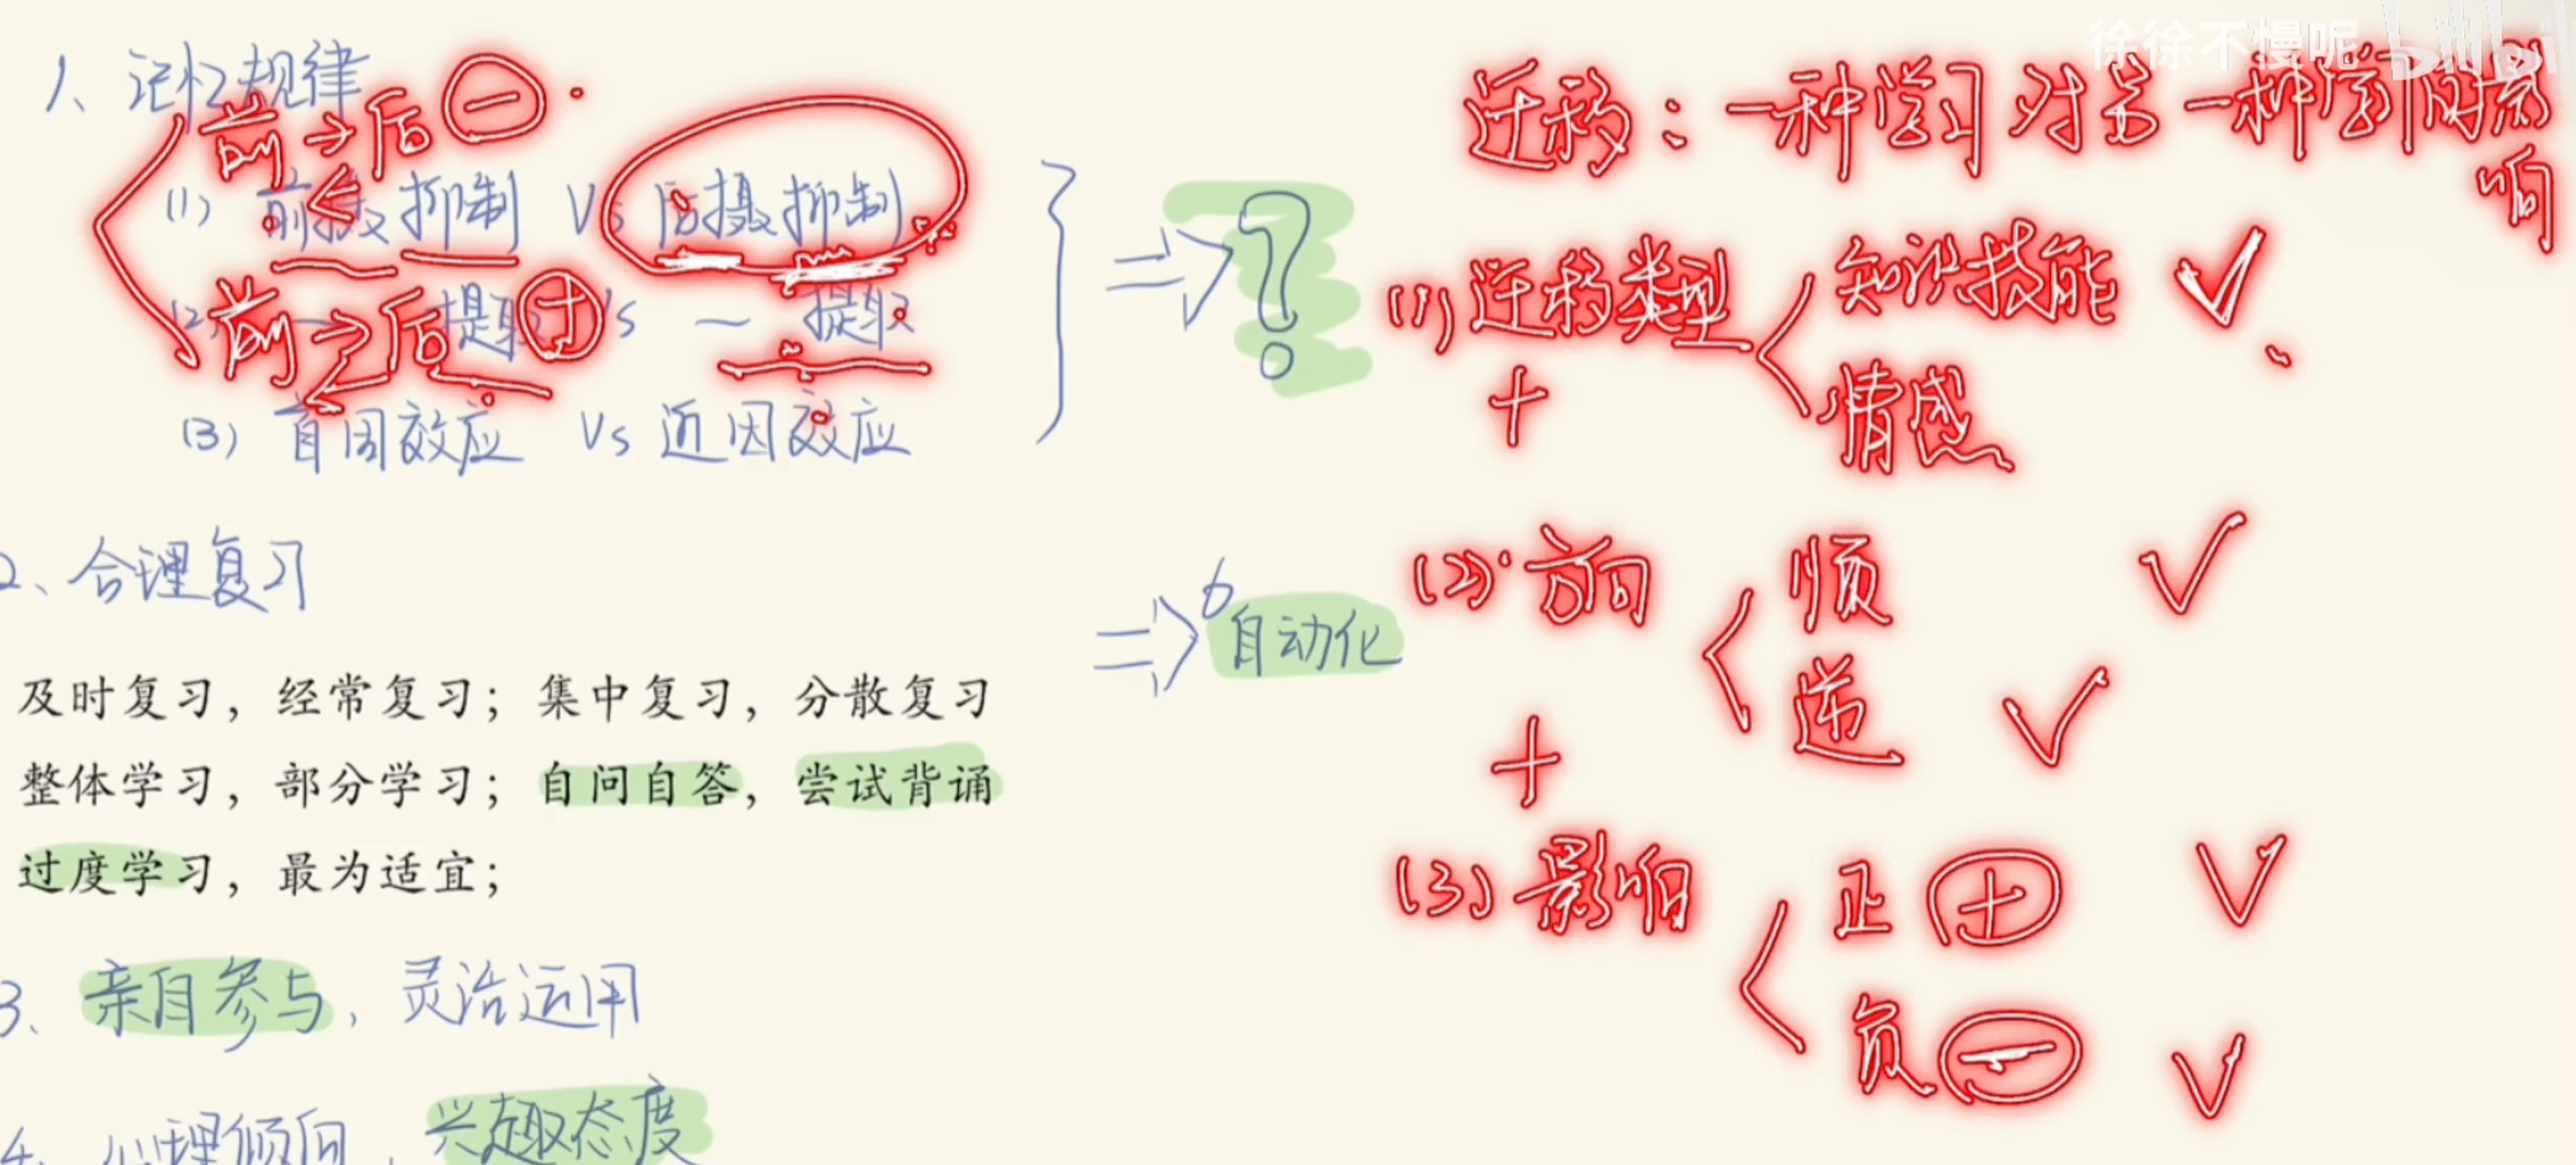 徐徐不慢呢
1、记忆规律
前→后 ⊖
(1) 前摄抑制 Vs 后摄抑制
前→后 ⊕
提取 Vs — 提取
(3) 首因效应 Vs 近因效应
⇒ ?
2、合理复习
⇒ 自动化
及时复习，经常复习；集中复习，分散复习
整体学习，部分学习；自问自答，尝试背诵
过度学习，最为适宜；
3、亲自参与，灵活运用
4、心理倾向，兴趣态度
迁移：一种学习对另一种学习的影响
(1) 迁移类型 知识技能 ✓
情感
+
(2) 方向 顺 ✓
逆 ✓
+
(3) 影响 正 ⊕ ✓
负 ⊖ ✓